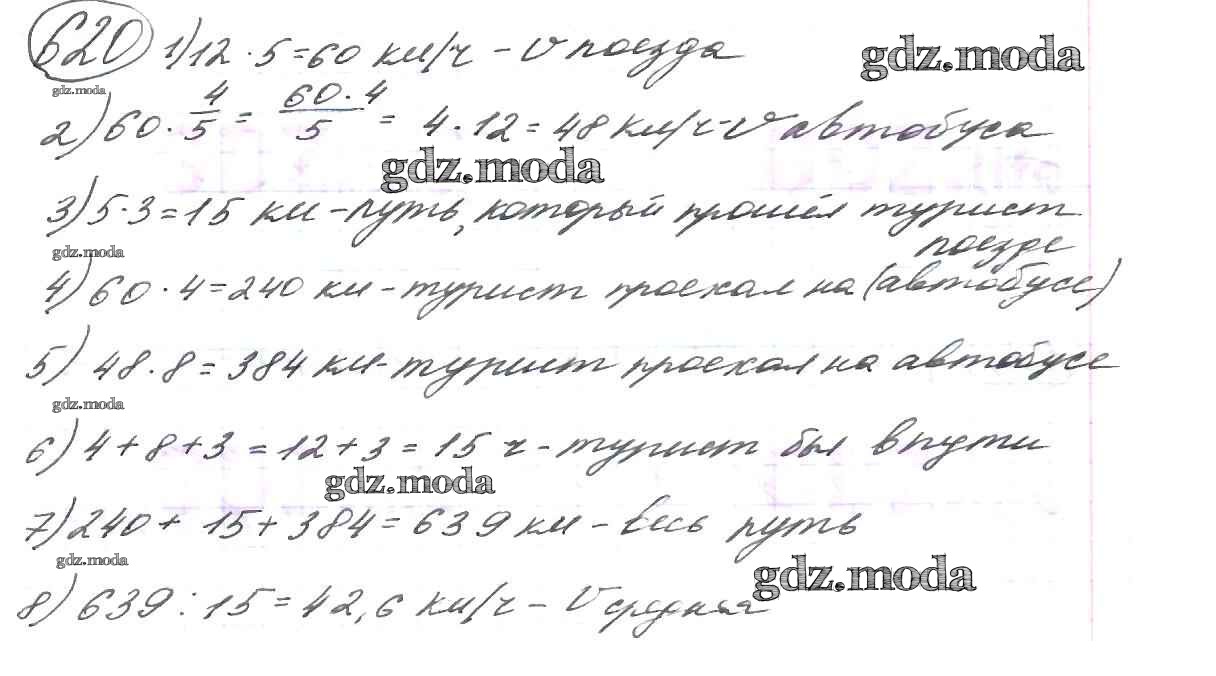 620 1) 12 · 5 = 60 км/ч – v поезда
gdz.moda
gdz.moda
2) 60 · 4/5 = 60 · 4/5 = 4 · 12 = 48 км/ч – v автобуса
gdz.moda
3) 5 · 3 = 15 км – путь, который прошёл турист
gdz.moda
поезде
4) 60 · 4 = 240 км – турист проехал на (автобусе)
5) 48 · 8 = 384 км – турист проехал на автобусе
gdz.moda
6) 4 + 8 + 3 = 12 + 3 = 15 ч – турист был в пути
gdz.moda
7) 240 + 15 + 384 = 639 км – весь путь
gdz.moda
gdz.moda
8) 639 : 15 = 42,6 км/ч – v средняя